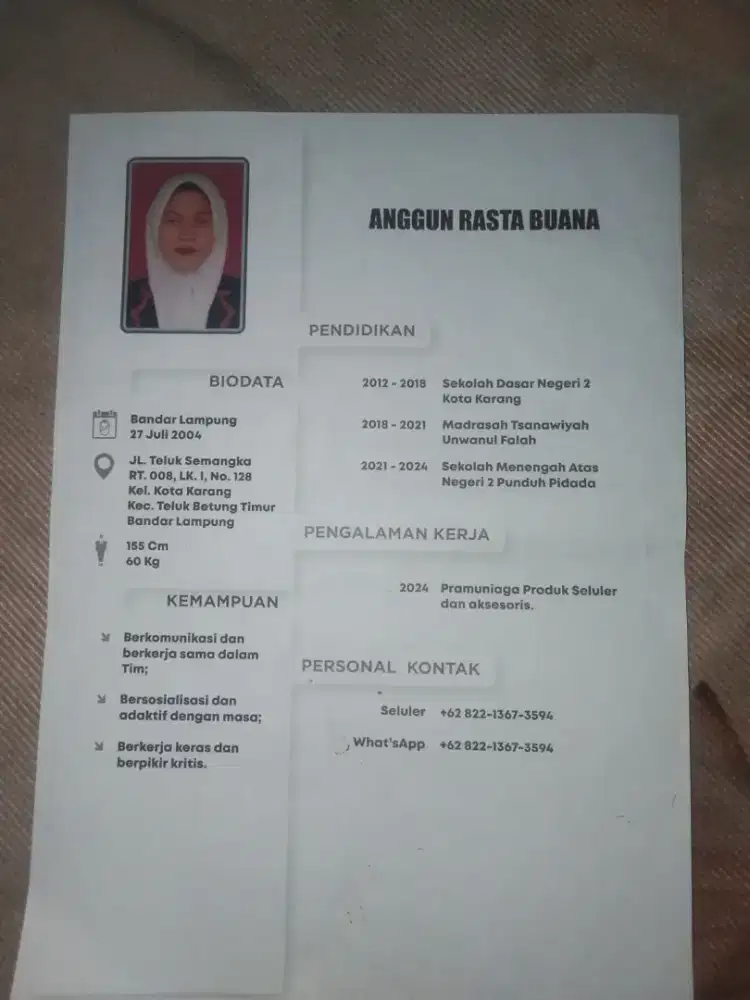 ANGGUN RASTA BUANA
BIODATA
Bandar Lampung
27 Juli 2004
JL. Teluk Semangka
RT. 008, LK. I, No. 128
Kel. Kota Karang
Kec. Teluk Betung Timur
Bandar Lampung
155 Cm
60 Kg
KEMAMPUAN
Berkomunikasi dan
berkerja sama dalam
Tim;
Bersosialisasi dan
adaktif dengan masa;
Berkerja keras dan
berpikir kritis.
PENDIDIKAN
2012 - 2018 Sekolah Dasar Negeri 2
Kota Karang
2018 - 2021 Madrasah Tsanawiyah
Unwanul Falah
2021 - 2024 Sekolah Menengah Atas
Negeri 2 Punduh Pidada
PENGALAMAN KERJA
2024 Pramuniaga Produk Seluler
dan aksesoris.
PERSONAL KONTAK
Seluler +62 822-1367-3594
What'sApp +62 822-1367-3594